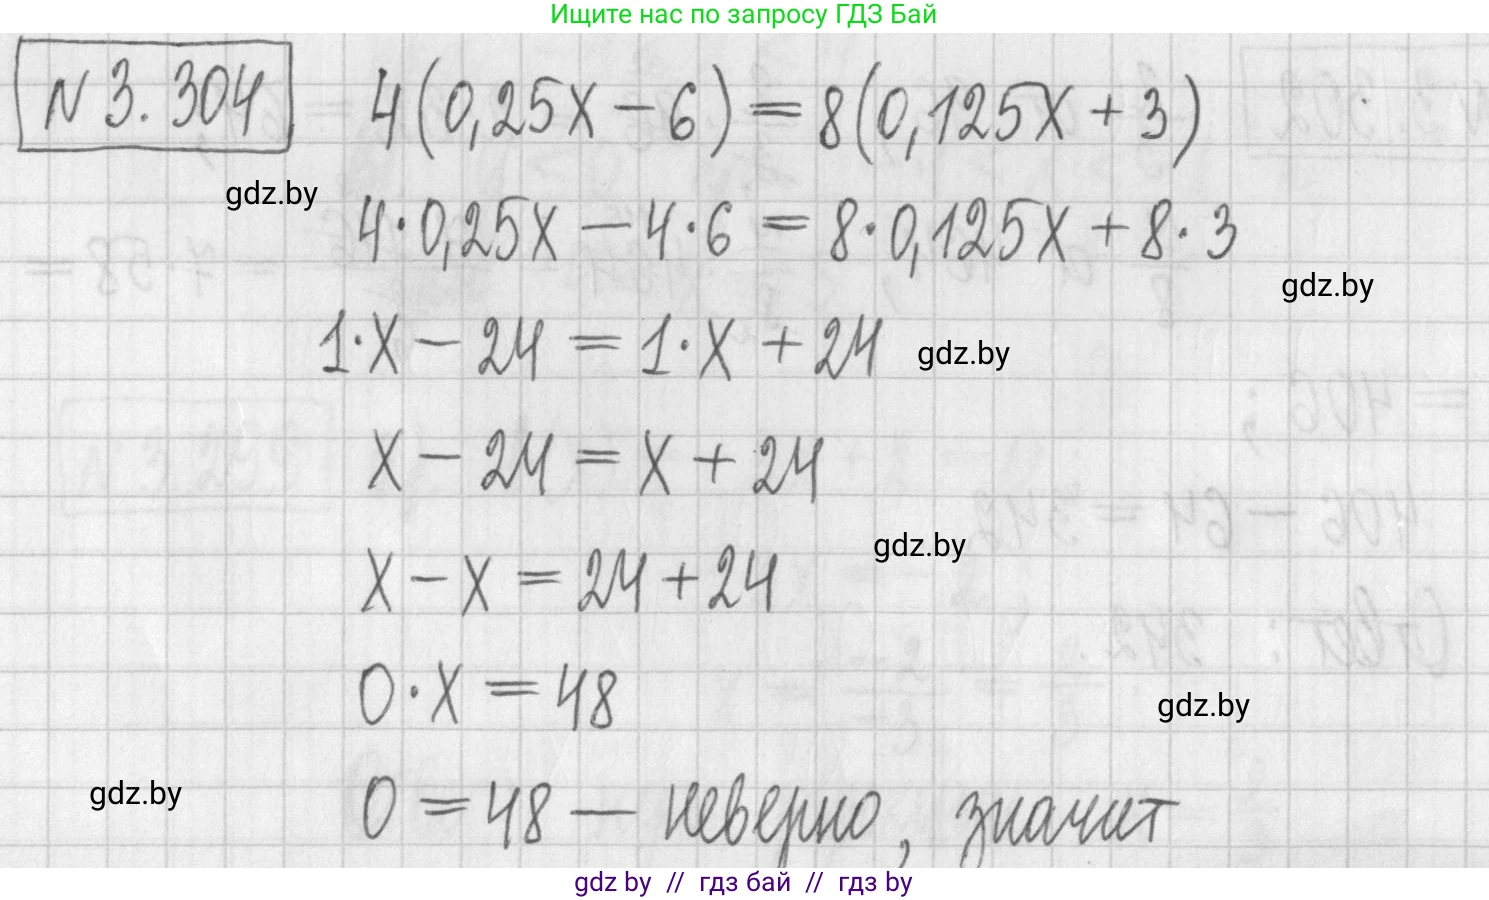 Ищите нас по запросу ГДЗ Бай
N 3. 304 4(0,25x - 6) = 8(0,125x + 3)
gdz.by
4·0,25x - 4·6 = 8·0,125x + 8·3
gdz.by
1·x - 24 = 1·x + 24
gdz.by
x - 24 = x + 24
gdz.by
x - x = 24 + 24
0·x = 48
gdz.by
gdz.by
0 = 48 — неверно, значит
gdz by // гдз бай // гдз by